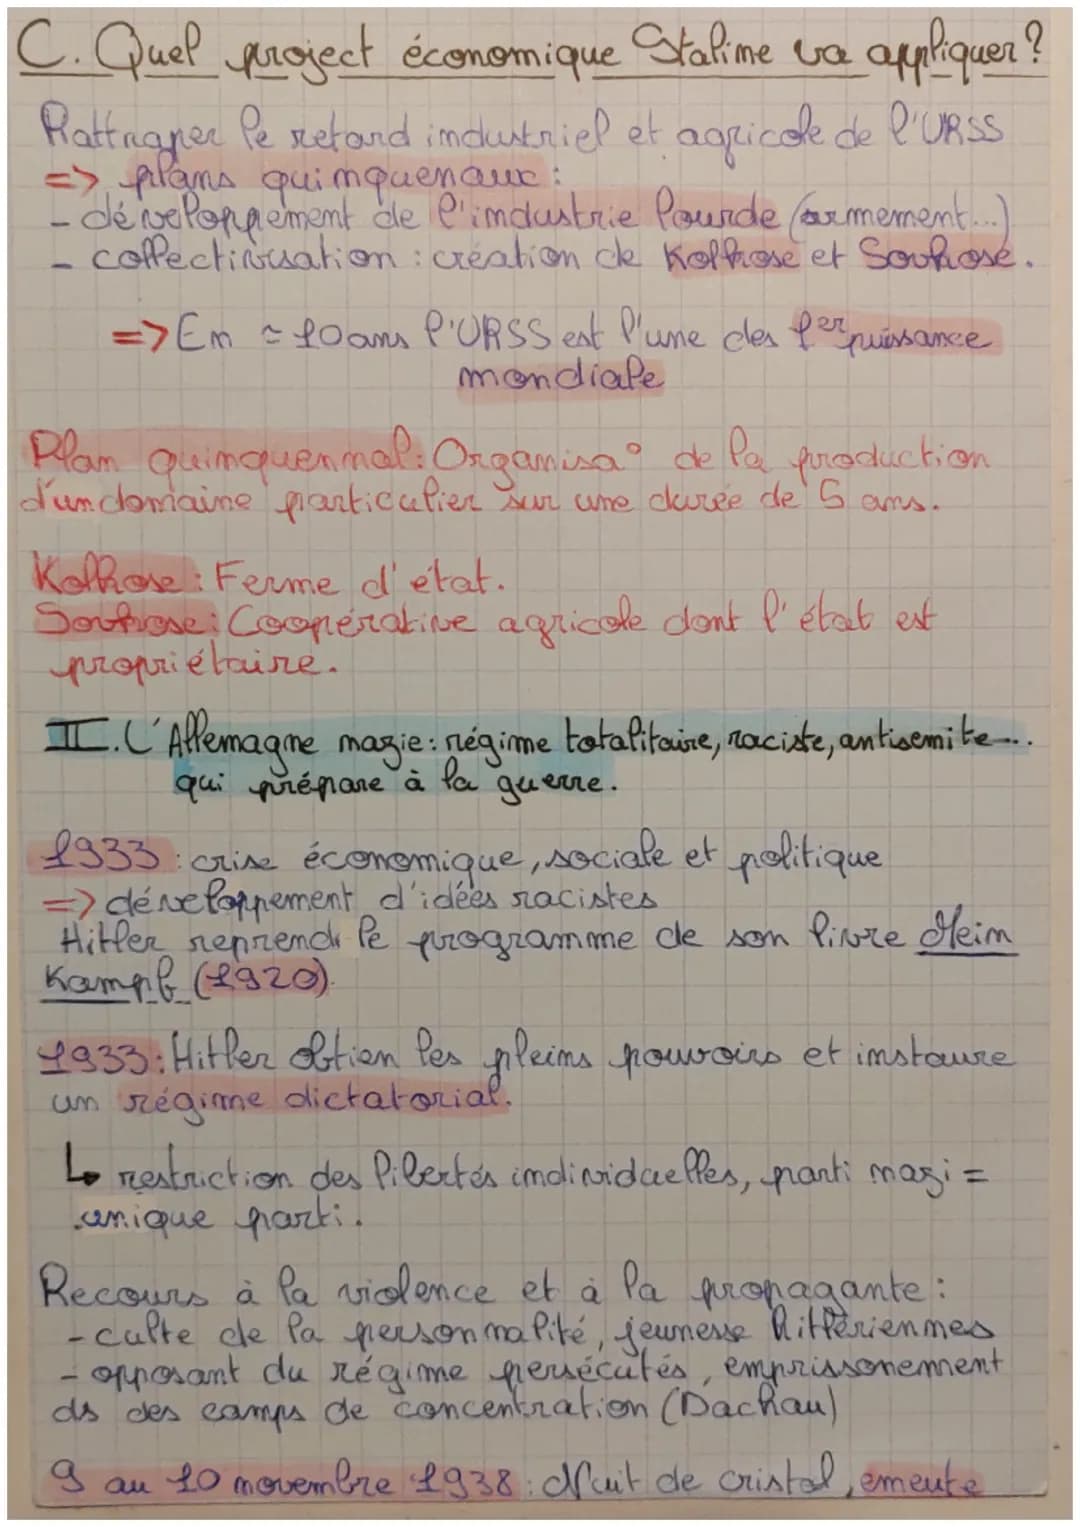 C. Quel project économique Staline va appliquer ?
Rattraper le retard industriel et agricole de l'URSS
=> plans quinquenaux :
- développement de l'industrie lourde (armement...)
- collectivisation : création de Kolhose et Sovhose.
=> En ≈ 10 ans l'URSS est l'une des 1er puissance
mondiale
Plan quinquennal : Organisa° de la production
d'un domaine particulier sur une durée de 5 ans.
Kolhose : Ferme d'état.
Sovhose : Coopérative agricole dont l'état est
propriétaire.
II. L'Allemagne nazie : régime totalitaire, raciste, antisemite...
qui prépare à la guerre.
1933 : crise économique, sociale et politique
=> développement d'idées racistes
Hitler reprend le programme de son livre Meim
Kampf (1920).
1933 : Hitler obtien les pleins pouvoirs et instaure
un régime dictatorial.
↳ restriction des libertés individuelles, parti nazi =
unique parti.
Recours à la violence et à la propagante :
- culte de la personnalité, jeunesse hitlériennes
- opposant du régime persécutés, emprissonement
ds des camps de concentration (Dachau)
9 au 10 novembre 1938 : Nuit de cristal, emeute